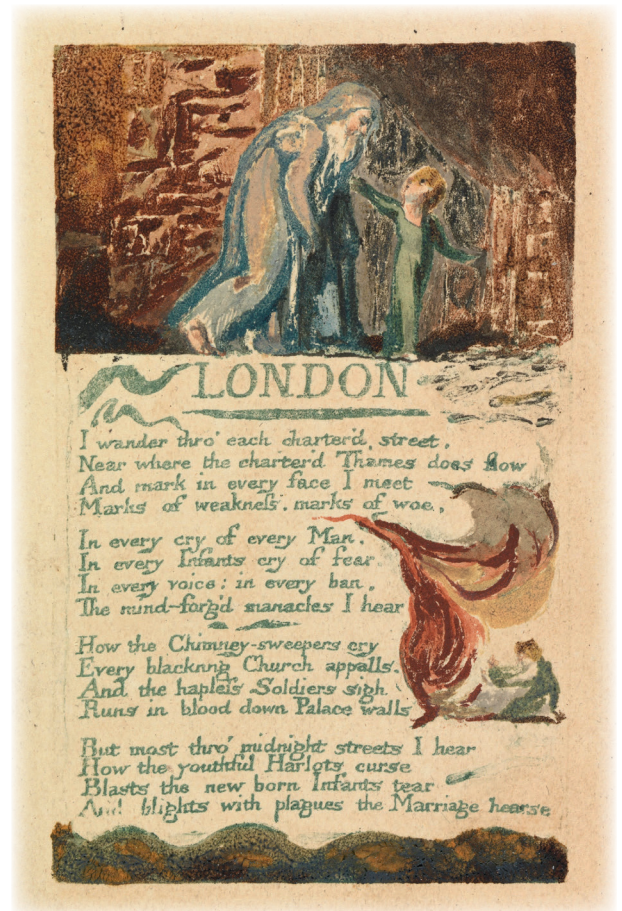 LONDON
I wander thro' each charter'd street,
Near where the charter'd Thames does flow
And mark in every face I meet
Marks of weakness, marks of woe,
In every cry of every Man,
In every Infants cry of fear,
In every voice: in every ban,
The mind-forg'd manacles I hear
How the Chimney-sweepers cry
Every blackning Church appalls,
And the hapless Soldiers sigh
Runs in blood down Palace walls
But most thro' midnight streets I hear
How the youthful Harlots curse
Blasts the new born Infants tear
And blights with plagues the Marriage hearse